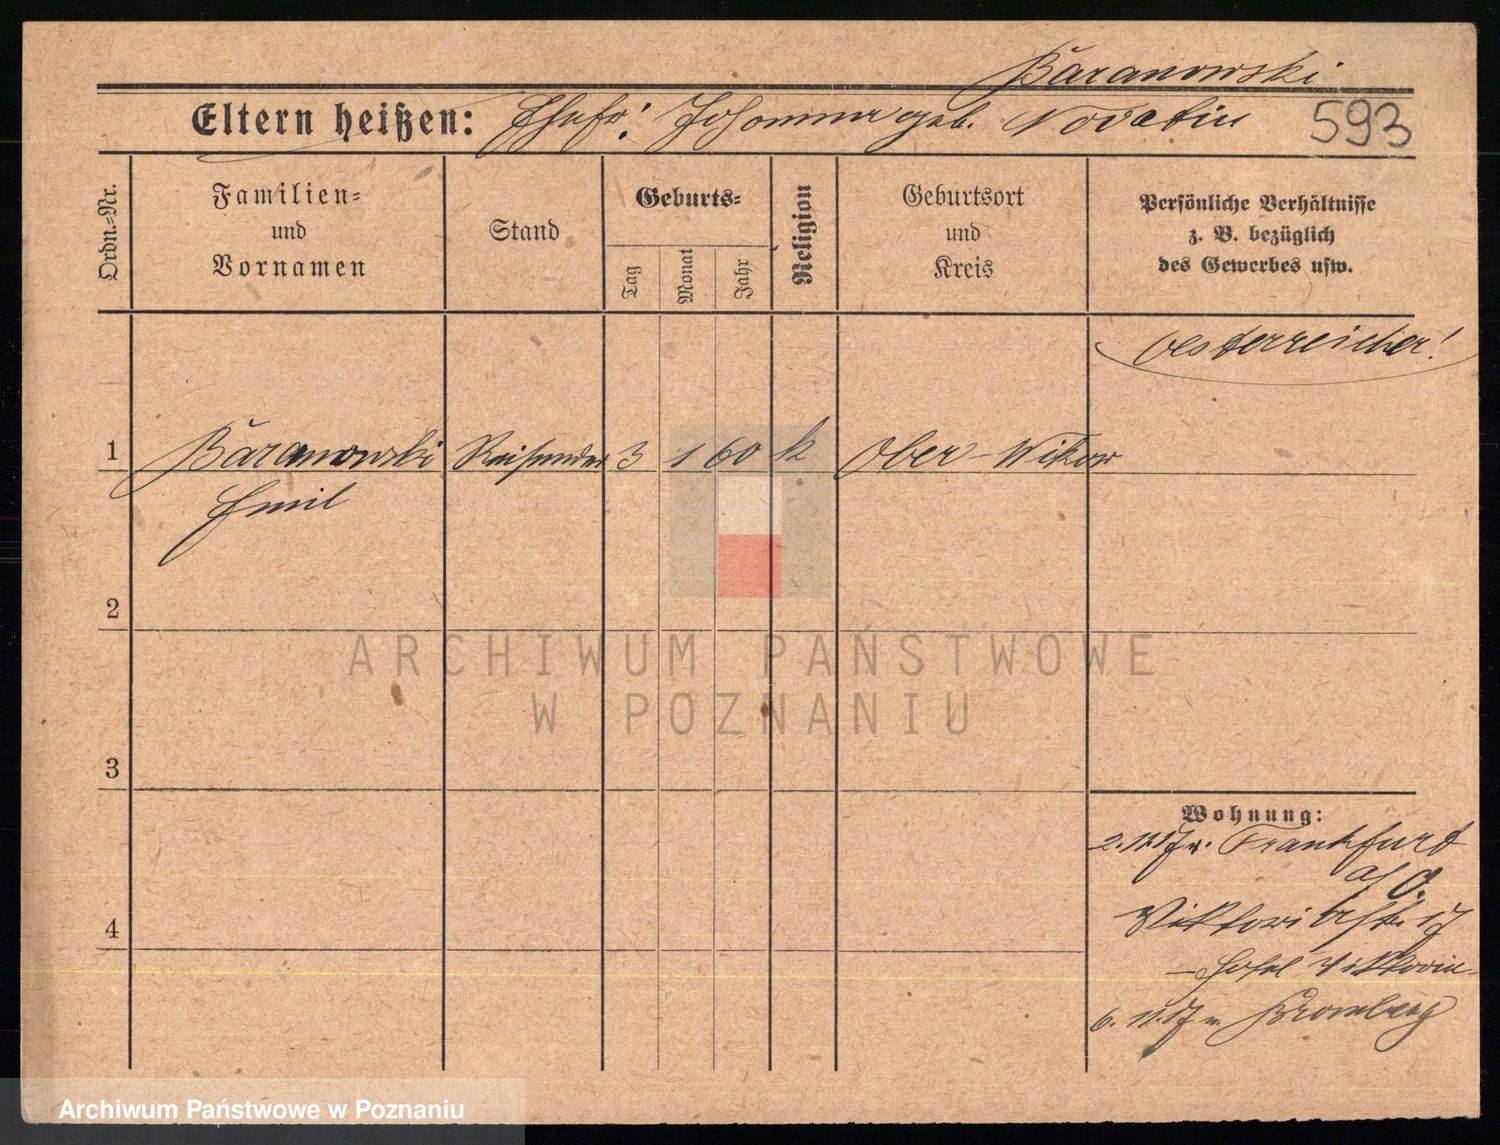 Bäranowski
Eltern heißen: Ehefr: Johanna geb. Novatin
593
Ordn.-Nr.
Familien-
und
Vornamen
Stand
Geburts-
Tag
Monat
Jahr
Religion
Geburtsort
und
Kreis
Persönliche Verhältnisse
z. B. bezüglich
des Gewerbes usw.
Oesterreicher!
1 Bäranowski Reisender 3 1 60 k Ober-Wikow
Emil
2
3
4
Wohnung:
2.11.17 v. Frankfurt
a/O.
Viktoriastr. 17
- Hotel Viktoria -
6.11.17 n. Bromberg
ARCHIWUM PAŃSTWOWE
W POZNANIU
Archiwum Państwowe w Poznaniu